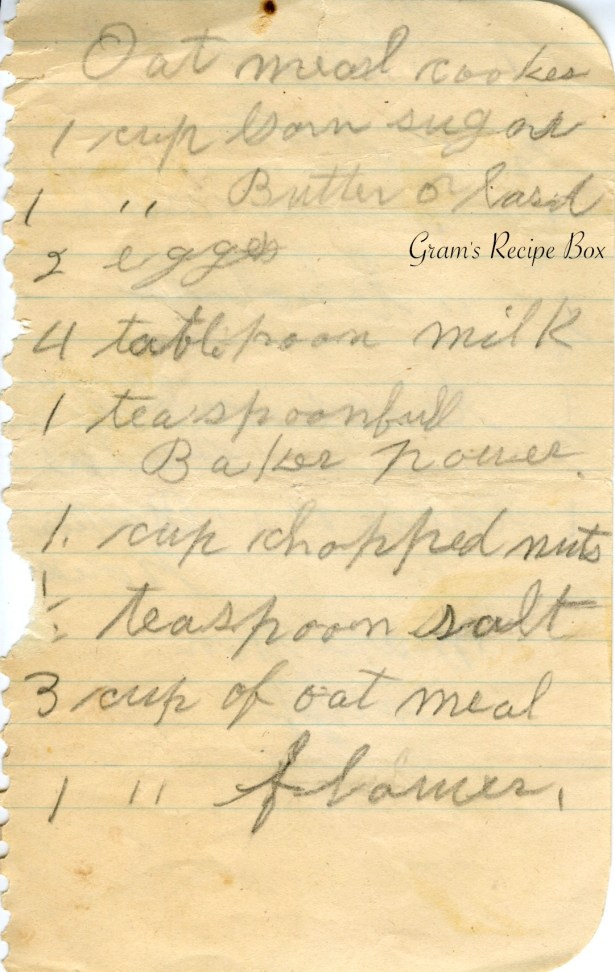 Oat meal cookes
1 cup born sugar
1 " Butter or lard
2 egges
Gram's Recipe Box
4 tablepoon milk
1 teaspoonfull
Baker power
1. cup chopped nuts
teaspoon salt
3 cup of oat meal
1 " flower.